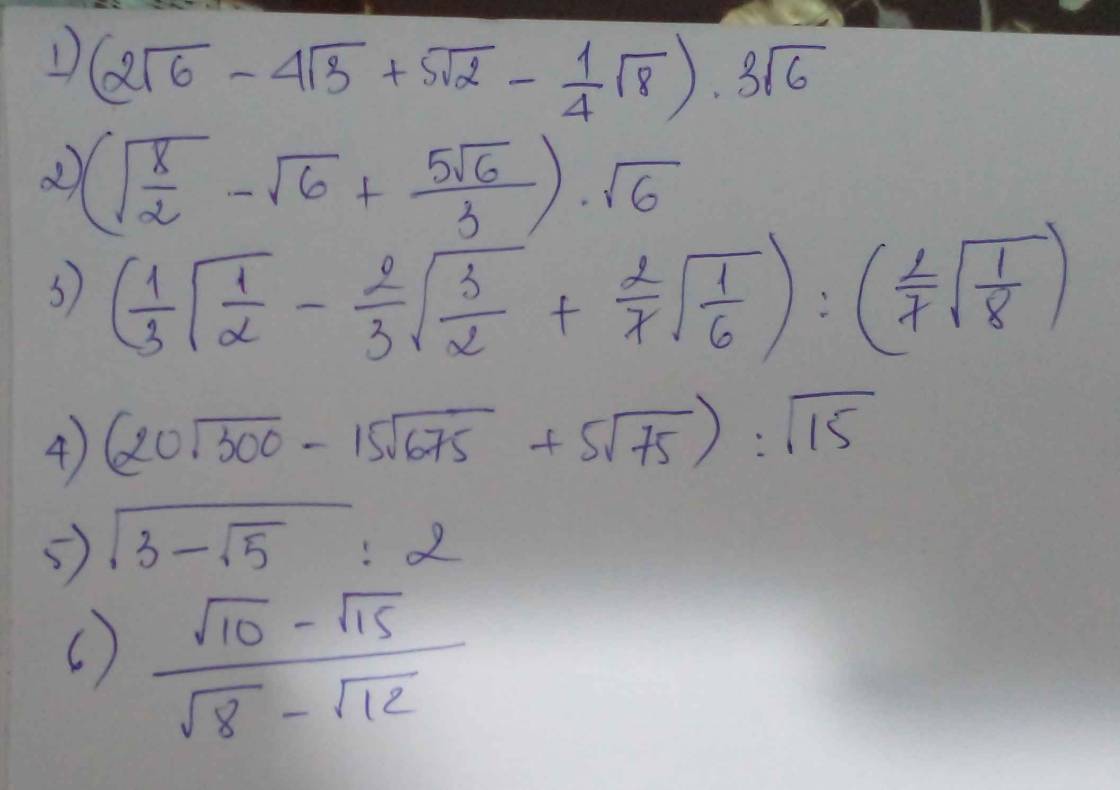 1) (2√6 - 4√3 + 5√2 - 1/4 √8) . 3√6
2) (√(8/2) - √6 + 5√6/3) . √6
3) (1/3 √(1/2) - 2/3 √(3/2) + 2/7 √(1/6)) : (2/7 √(1/8))
4) (20√300 - 15√675 + 5√75) : √15
5) √(3-√5) : 2
6) (√10 - √15)/(√8 - √12)